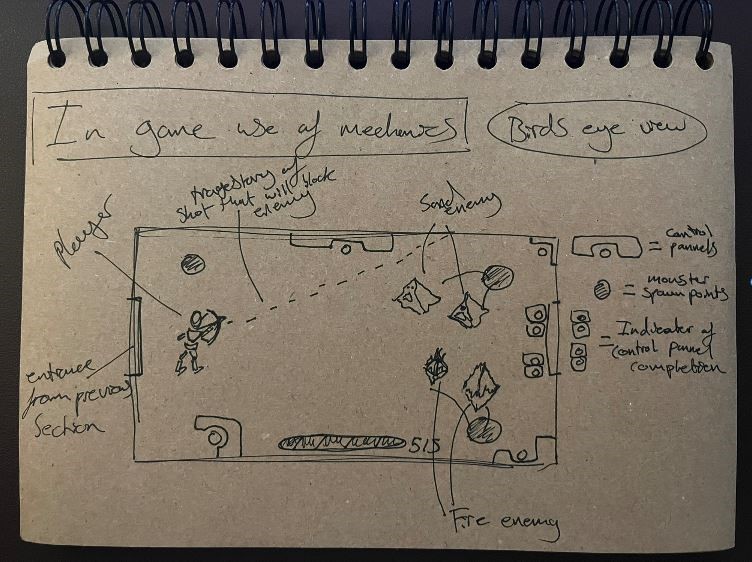 In game use of mechanics
Birds eye view
trajectory of
shot that will block
enemy
Sand
enemy
player
= control
pannels
= monster
spawn points
= Indicater of
control pannel
completion
entrance
from previous
Section
5/5
Fire enemy